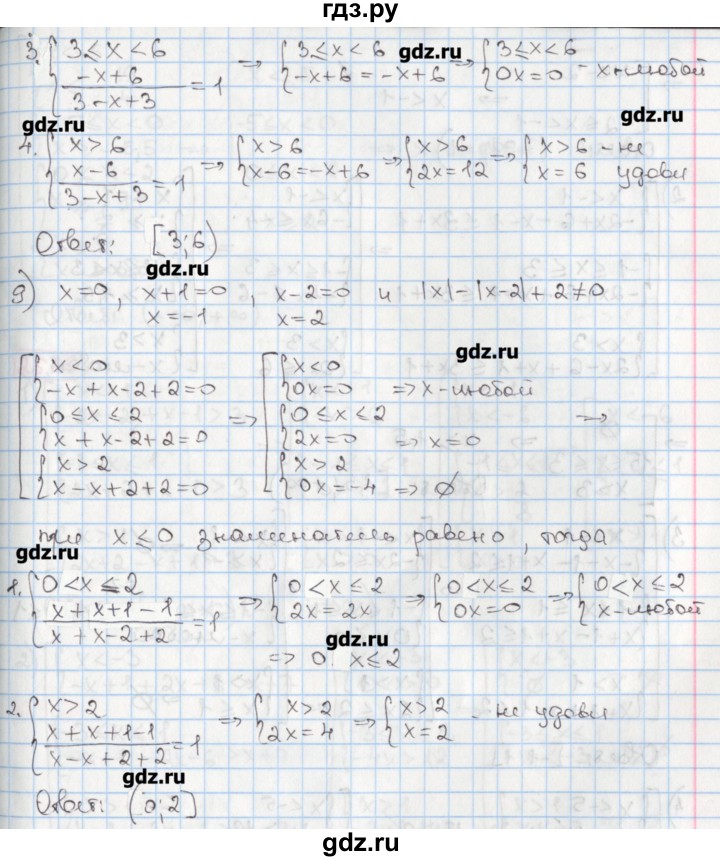 гдз.ру
3. { 3 ≤ x < 6 ; (-x+6)/(3-x+3) = 1 => { 3 ≤ x < 6 ; -x+6 = -x+6 => { 3 ≤ x < 6 ; 0x = 0 - x-любой
gdz.ru
gdz.ru
gdz.ru
4. { x > 6 ; (x-6)/(3-x+3) = 1 => { x > 6 ; x-6 = -x+6 => { x > 6 ; 2x = 12 => { x > 6 - не ; x = 6 удовл
gdz.ru
Ответ: [3;6)
gdz.ru
9) x=0, x+1=0, x-2=0 и |x|-|x-2|+2≠0
x=-1 x=2
gdz.ru
[ { x < 0 ; -x+x-2+2=0 => [ { x < 0 ; 0x=0 => x-любой
{ 0 ≤ x ≤ 2 ; x+x-2+2=0 { 0 ≤ x ≤ 2 ; 2x=0 => x=0 =>
{ x > 2 ; x-x+2+2=0 { x > 2 ; 0x=-4 => ∅
при x ≤ 0 знаменатель равено, тогда
gdz.ru
1. { 0 < x ≤ 2 ; (x+x+1-1)/(x+x-2+2) = 1 => { 0 < x ≤ 2 ; 2x = 2x => { 0 < x ≤ 2 ; 0x=0 => { 0 < x ≤ 2 ; x-любой
gdz.ru
=> 0 x ≤ 2
2. { x > 2 ; (x+x+1-1)/(x-x+2+2) = 1 => { x > 2 ; 2x=4 => { x > 2 ; x=2 - не удовл
gdz.ru
Ответ: (0;2]
gdz.ru